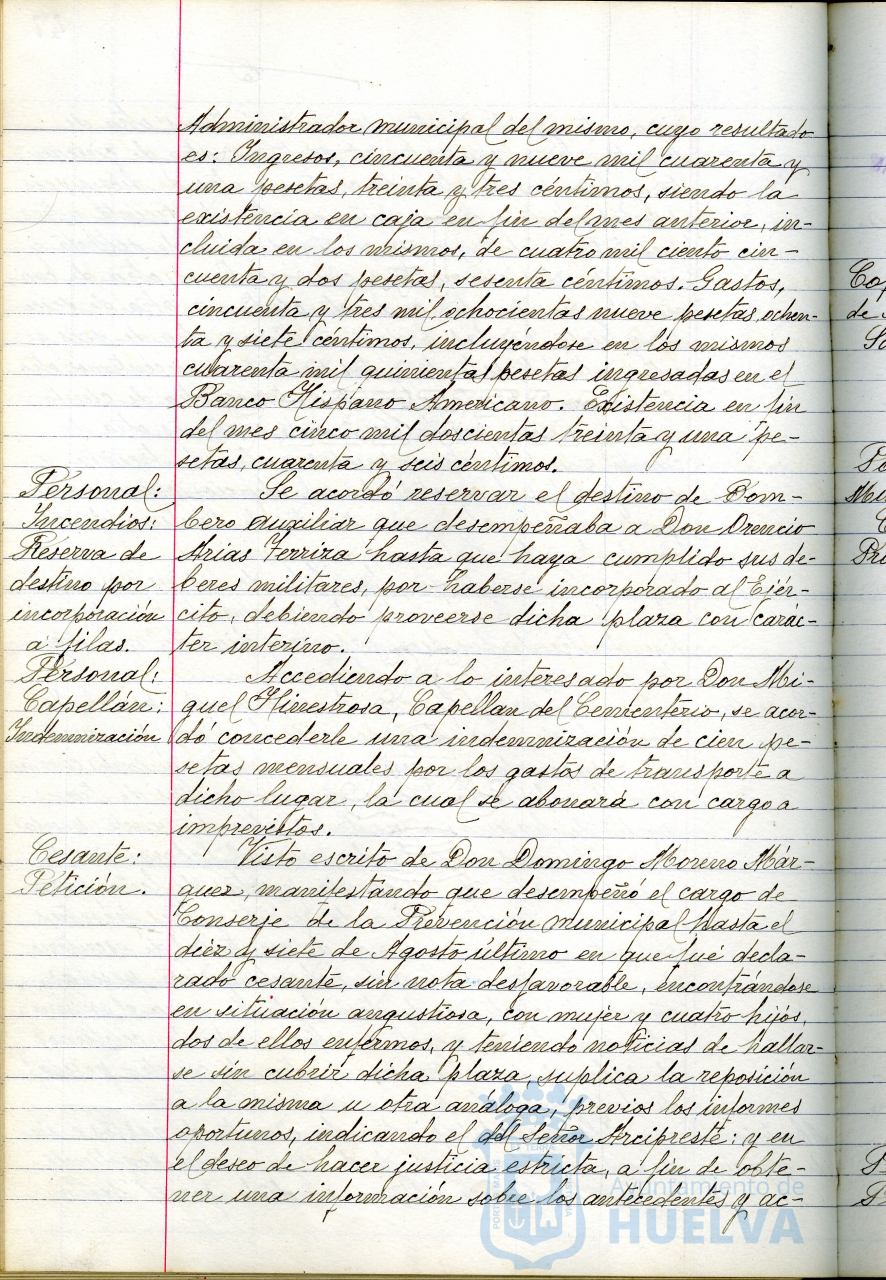 Administrador municipal del mismo, cuyo resultado
es: Ingresos, cincuenta y nueve mil cuarenta y
una pesetas, treinta y tres céntimos, siendo la
existencia en caja en fin del mes anterior, in-
cluida en los mismos, de cuatro mil ciento cin-
cuenta y dos pesetas, sesenta céntimos. Gastos,
cincuenta y tres mil ochocientas nueve pesetas, ochen-
ta y siete céntimos, incluyéndose en los mismos
cuarenta mil quinientas pesetas ingresadas en el
Banco Hispano Americano. Existencia en fin
del mes cinco mil doscientas treinta y una pe-
setas, cuarenta y seis céntimos.
Personal:
Incendios:
Reserva de
destino por
incorporación
a filas.
Se acordó reservar el destino de Bom-
bero auxiliar que desempeñaba a Don Orencio
Arias Ferriza hasta que haya cumplido sus de-
beres militares, por haberse incorporado al Ejér-
cito, debiendo proveerse dicha plaza con carác-
ter interino.
Personal:
Capellán:
Indemnización
Accediendo a lo interesado por Don Mi-
guel Hinestrosa, Capellan del Cementerio, se acor-
dó concederle una indemnización de cien pe-
setas mensuales por los gastos de transporte a
dicho lugar, la cual se abonará con cargo a
imprevistos.
Cesante:
Petición.
Visto escrito de Don Domingo Moreno Már-
quez, manifestando que desempeñó el cargo de
Conserje de la Prevención municipal hasta el
diéz y siete de Agosto último en que fué decla-
rado cesante, sin nota desfavorable, encontrándose
en situación angustiosa, con mujer y cuatro hijos,
dos de ellos enfermos, y teniendo noticias de hallar-
se sin cubrir dicha plaza, suplica la reposición
a la misma u otra análoga, previos los informes
oportunos, indicando el del Señor Arcipreste: y en
el deseo de hacer justicia estricta, a fin de obte-
ner una información sobre los antecedentes y ac-
Ayuntamiento de
HUELVA